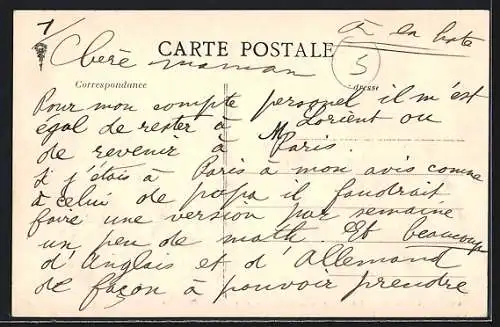 1/
à la hate
Chère maman
CARTE POSTALE
5
Correspondance
Adresse
Pour mon compte personel il m'est
égal de rester à Lorient ou
M
de revenir à Paris.
Si j'étais à Paris à mon avis comme
à celui de papa il faudrait
faire une version par semaine
un peu de math. Et beaucoup
d'Anglais et d'Allemand
de façon à pouvoir prendre